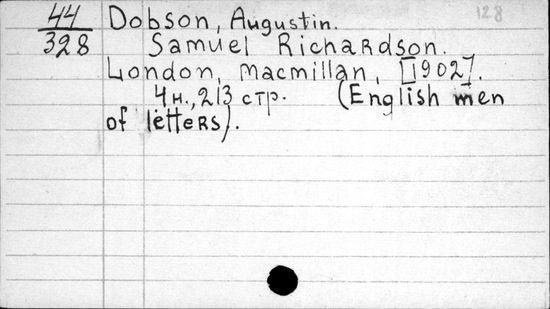 128
44 Dobson, Augustin.
328 Samuel Richardson.
London, Macmillan, [1902].
4 н., 213 стр. (English men
of letters).